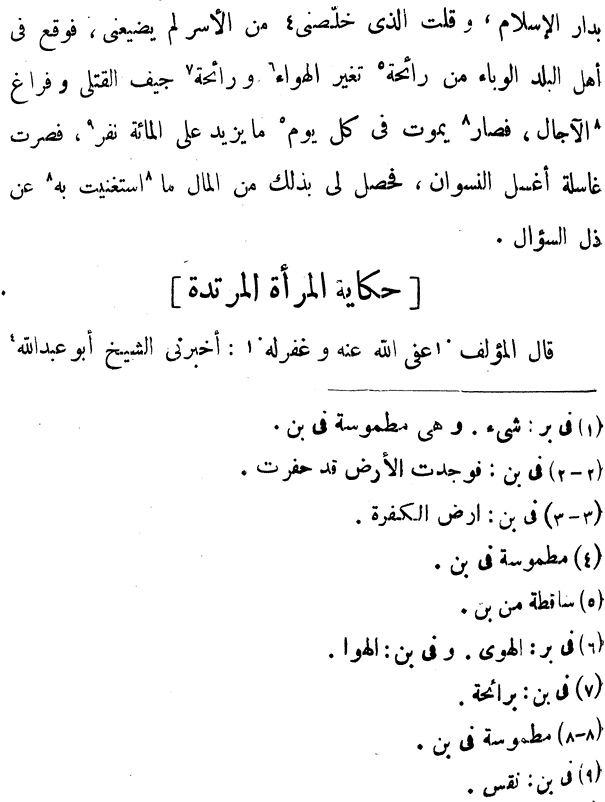 بدار الإسلام ، و قلت الذى خلّصنى٤ من الأسر لم يضيعنى ، فوقع فى
أهل البلد الوباء من رائحة٥ تغير الهواء٦ و رائحة٧ جيف القتلى و فراغ
٨الآجال ، فصار٨ يموت فى كل يوم٥ ما يزيد على المائة نفر٩ ، فصرت
غاسلة أغسل النسوان ، فحصل لى بذلك من المال ما ٨استغنيت به٨ عن
ذل السؤال .
[ حكاية المرأة المرتدة ]
قال المؤلف ١٠عفى الله عنه و غفرله١٠ : أخبرنى الشيخ أبو عبدالله٤
(١) فى بر : شىء . و هى مطموسة فى بن .
(٢-٢) فى بن : فوجدت الأرض قد حفرت .
(٣-٣) فى بن : ارض الكفرة .
(٤) مطموسة فى بن .
(٥) ساقطة من بن .
(٦) فى بر : الهوى . و فى بن : الهوا .
(٧) فى بن : برائحة .
(٨-٨) مطموسة فى بن .
(٩) فى بن : نقس .